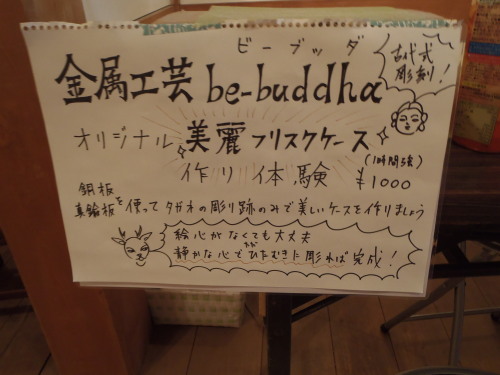 ビーブッダ
金属工芸 be-buddha
古代式
彫刻!
オリジナル 美麗フリスクケース
作り体験
(1時間強)
¥1000
銅板
真鍮板
を使ってタガネの彫り跡のみで美しいケースを作りましょう
絵心がなくても大丈夫
ただ
静かな心でひたむきに彫れば完成!